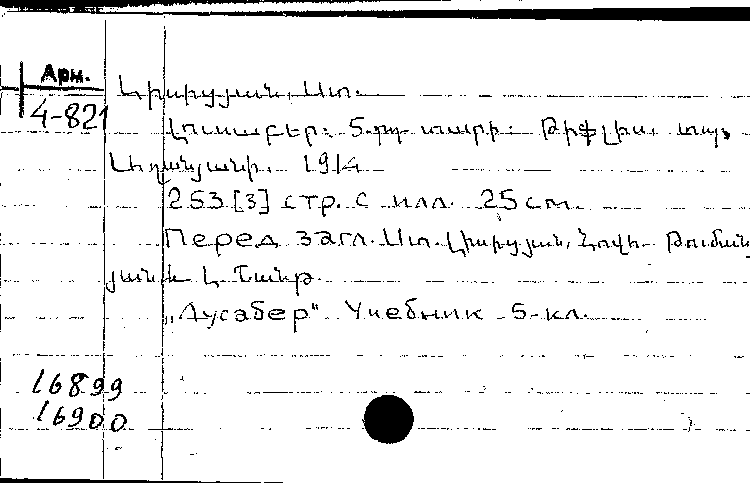 Арм.
4-821
Լիսիցյան, Ստ.
Լուսաբեր: 5-րդ տարի: Թիֆլիս, տպ.
1914
253 [3] стр. с илл. 25 см.
Перед загл. Ստ. Լիսիցյան, Հովհ. Թուման
յան և Լ. Շանթ.
„Лусабер" Учебник 5-кл.
16899
16900